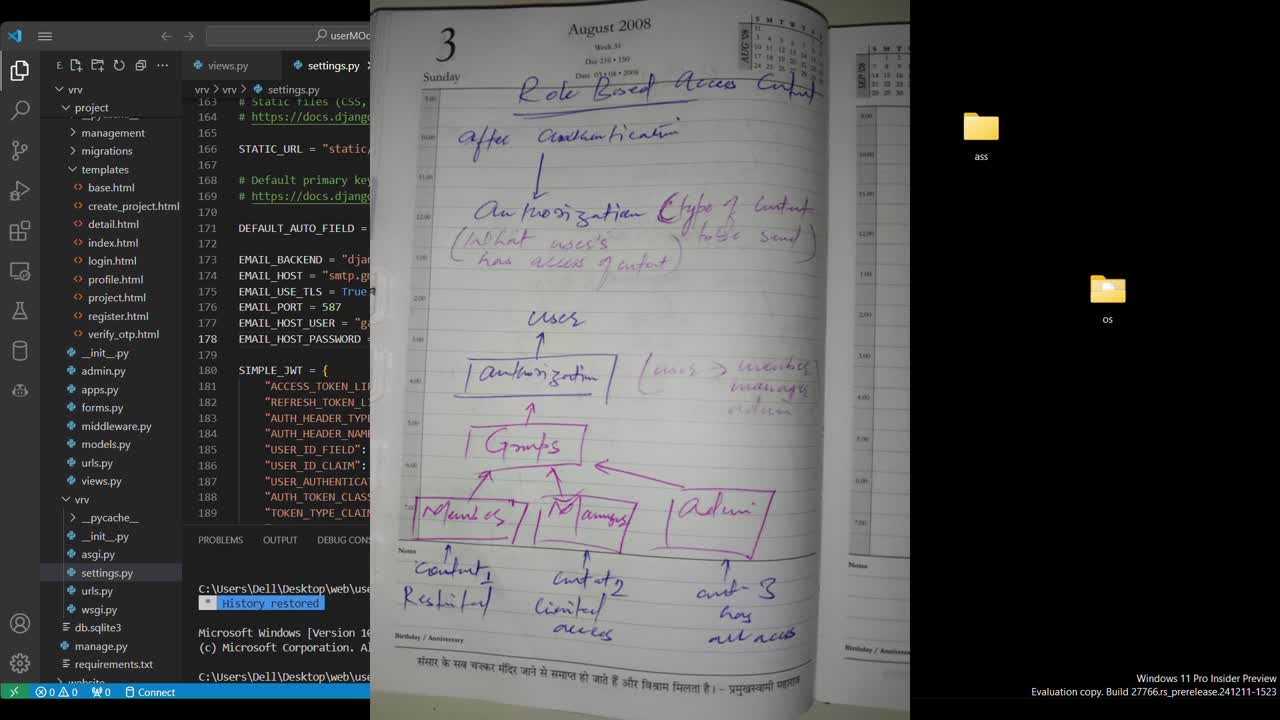 views.py
settings.py
userMO
vrv > vrv > settings.py
vrv
project
__pycache__
management
migrations
templates
base.html
create_project.html
detail.html
index.html
login.html
profile.html
project.html
register.html
verify_otp.html
__init__.py
admin.py
apps.py
forms.py
middleware.py
models.py
urls.py
views.py
vrv
__pycache__
__init__.py
asgi.py
settings.py
urls.py
wsgi.py
db.sqlite3
manage.py
requirements.txt
website
0 0 0 Connect
163 # Static files (CSS,
164 # https://docs.django
165
166 STATIC_URL = "static/
167
168 # Default primary key
169 # https://docs.django
170
171 DEFAULT_AUTO_FIELD =
172
173 EMAIL_BACKEND = "djan
174 EMAIL_HOST = "smtp.gm
175 EMAIL_USE_TLS = True
176 EMAIL_PORT = 587
177 EMAIL_HOST_USER = "ga
178 EMAIL_HOST_PASSWORD =
179
180 SIMPLE_JWT = {
181 "ACCESS_TOKEN_LI
182 "REFRESH_TOKEN_LI
183 "AUTH_HEADER_TYPE
184 "AUTH_HEADER_NAME
185 "USER_ID_FIELD":
186 "USER_ID_CLAIM":
187 "USER_AUTHENTICAT
188 "AUTH_TOKEN_CLASS
189 "TOKEN_TYPE_CLAIM
PROBLEMS OUTPUT DEBUG CONS
C:\Users\Dell\Desktop\web\use
* History restored
Microsoft Windows [Version 10
(c) Microsoft Corporation. Al
C:\Users\Dell\Desktop\web\use
3
Sunday
August 2008
Week 31
Day 216 • 150
Date 03 • 08 • 2008
AUG '08
S M T W T F S
Role Based Access
after authentication
authorization (type of content
to be send)
(What user's
has access of content)
user
authorization
(user → member
manager
admin
Groups
Member
Manager
Admin
Notes
content 1
Restricted
content 2
limited
access
3
has
all access
Birthday / Anniversary
संसार के सब चक्कर मंदिर जाने से समाप्त हो जाते हैं और विश्राम मिलता है। – प्रमुखस्वामी महाराज
SEP '08
Notes
Birthday / Anniversary
ass
os
Windows 11 Pro Insider Preview
Evaluation copy. Build 27766.rs_prerelease.241211-1523